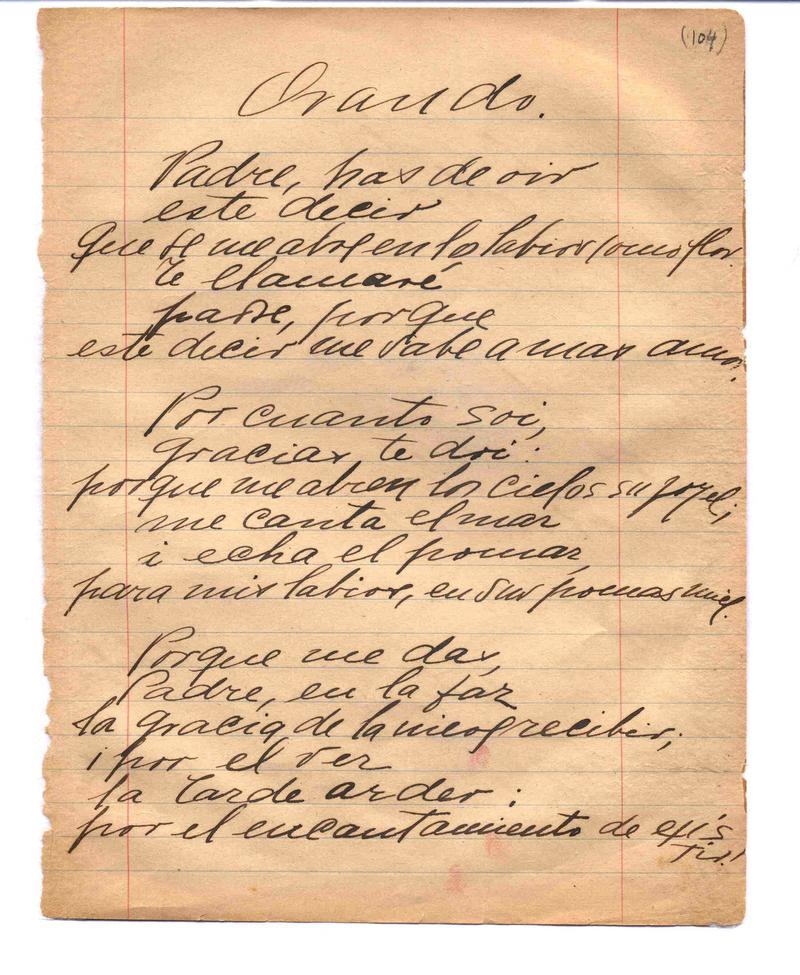 (104)
Orando.
Padre, has de oir
este decir
que se me abre en los labios como flor.
Te llamaré
padre, porque
este decir me sabe a mas amor.
Por cuanto soi,
gracias te doi:
porque me abren los cielos su joyel;
me canta el mar
i echa el pomar
para mis labios, en sus pomas miel.
Porque me das,
Padre, en la faz
la gracia de la nieve recibir;
i por el ver
la tarde arder:
por el encantamiento de exis
tir!